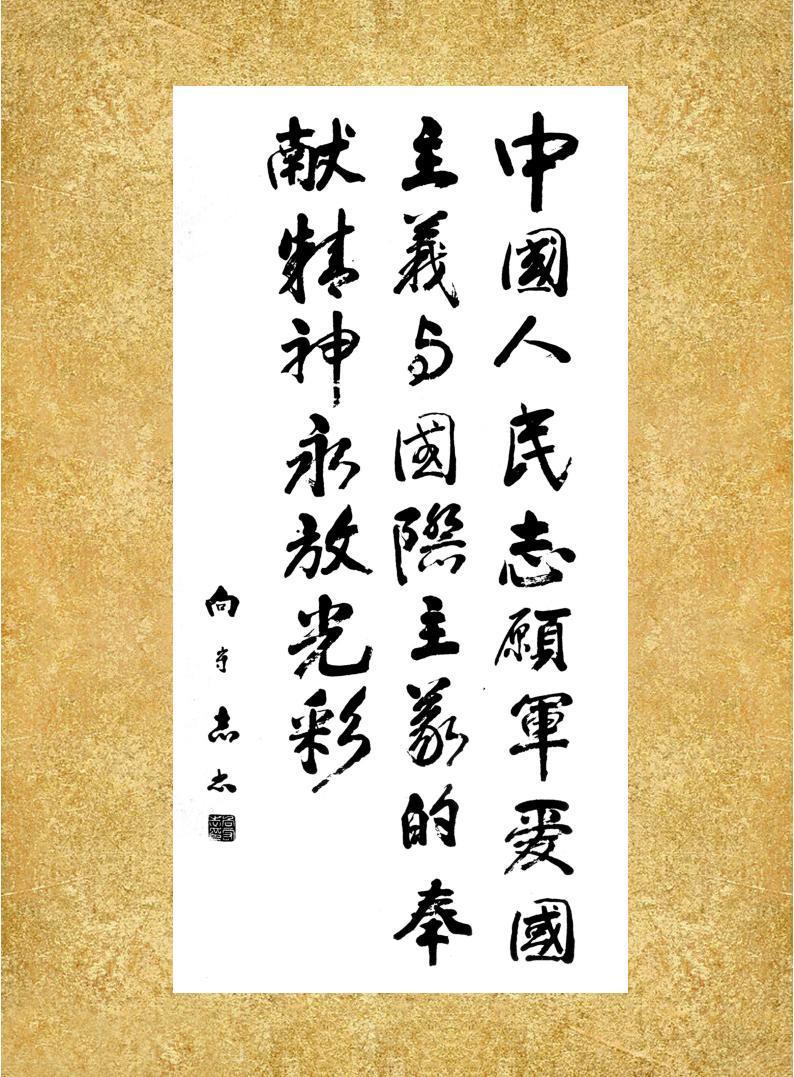 中國人民志願軍愛國
主義与國際主義的奉
献精神永放光彩
向守志